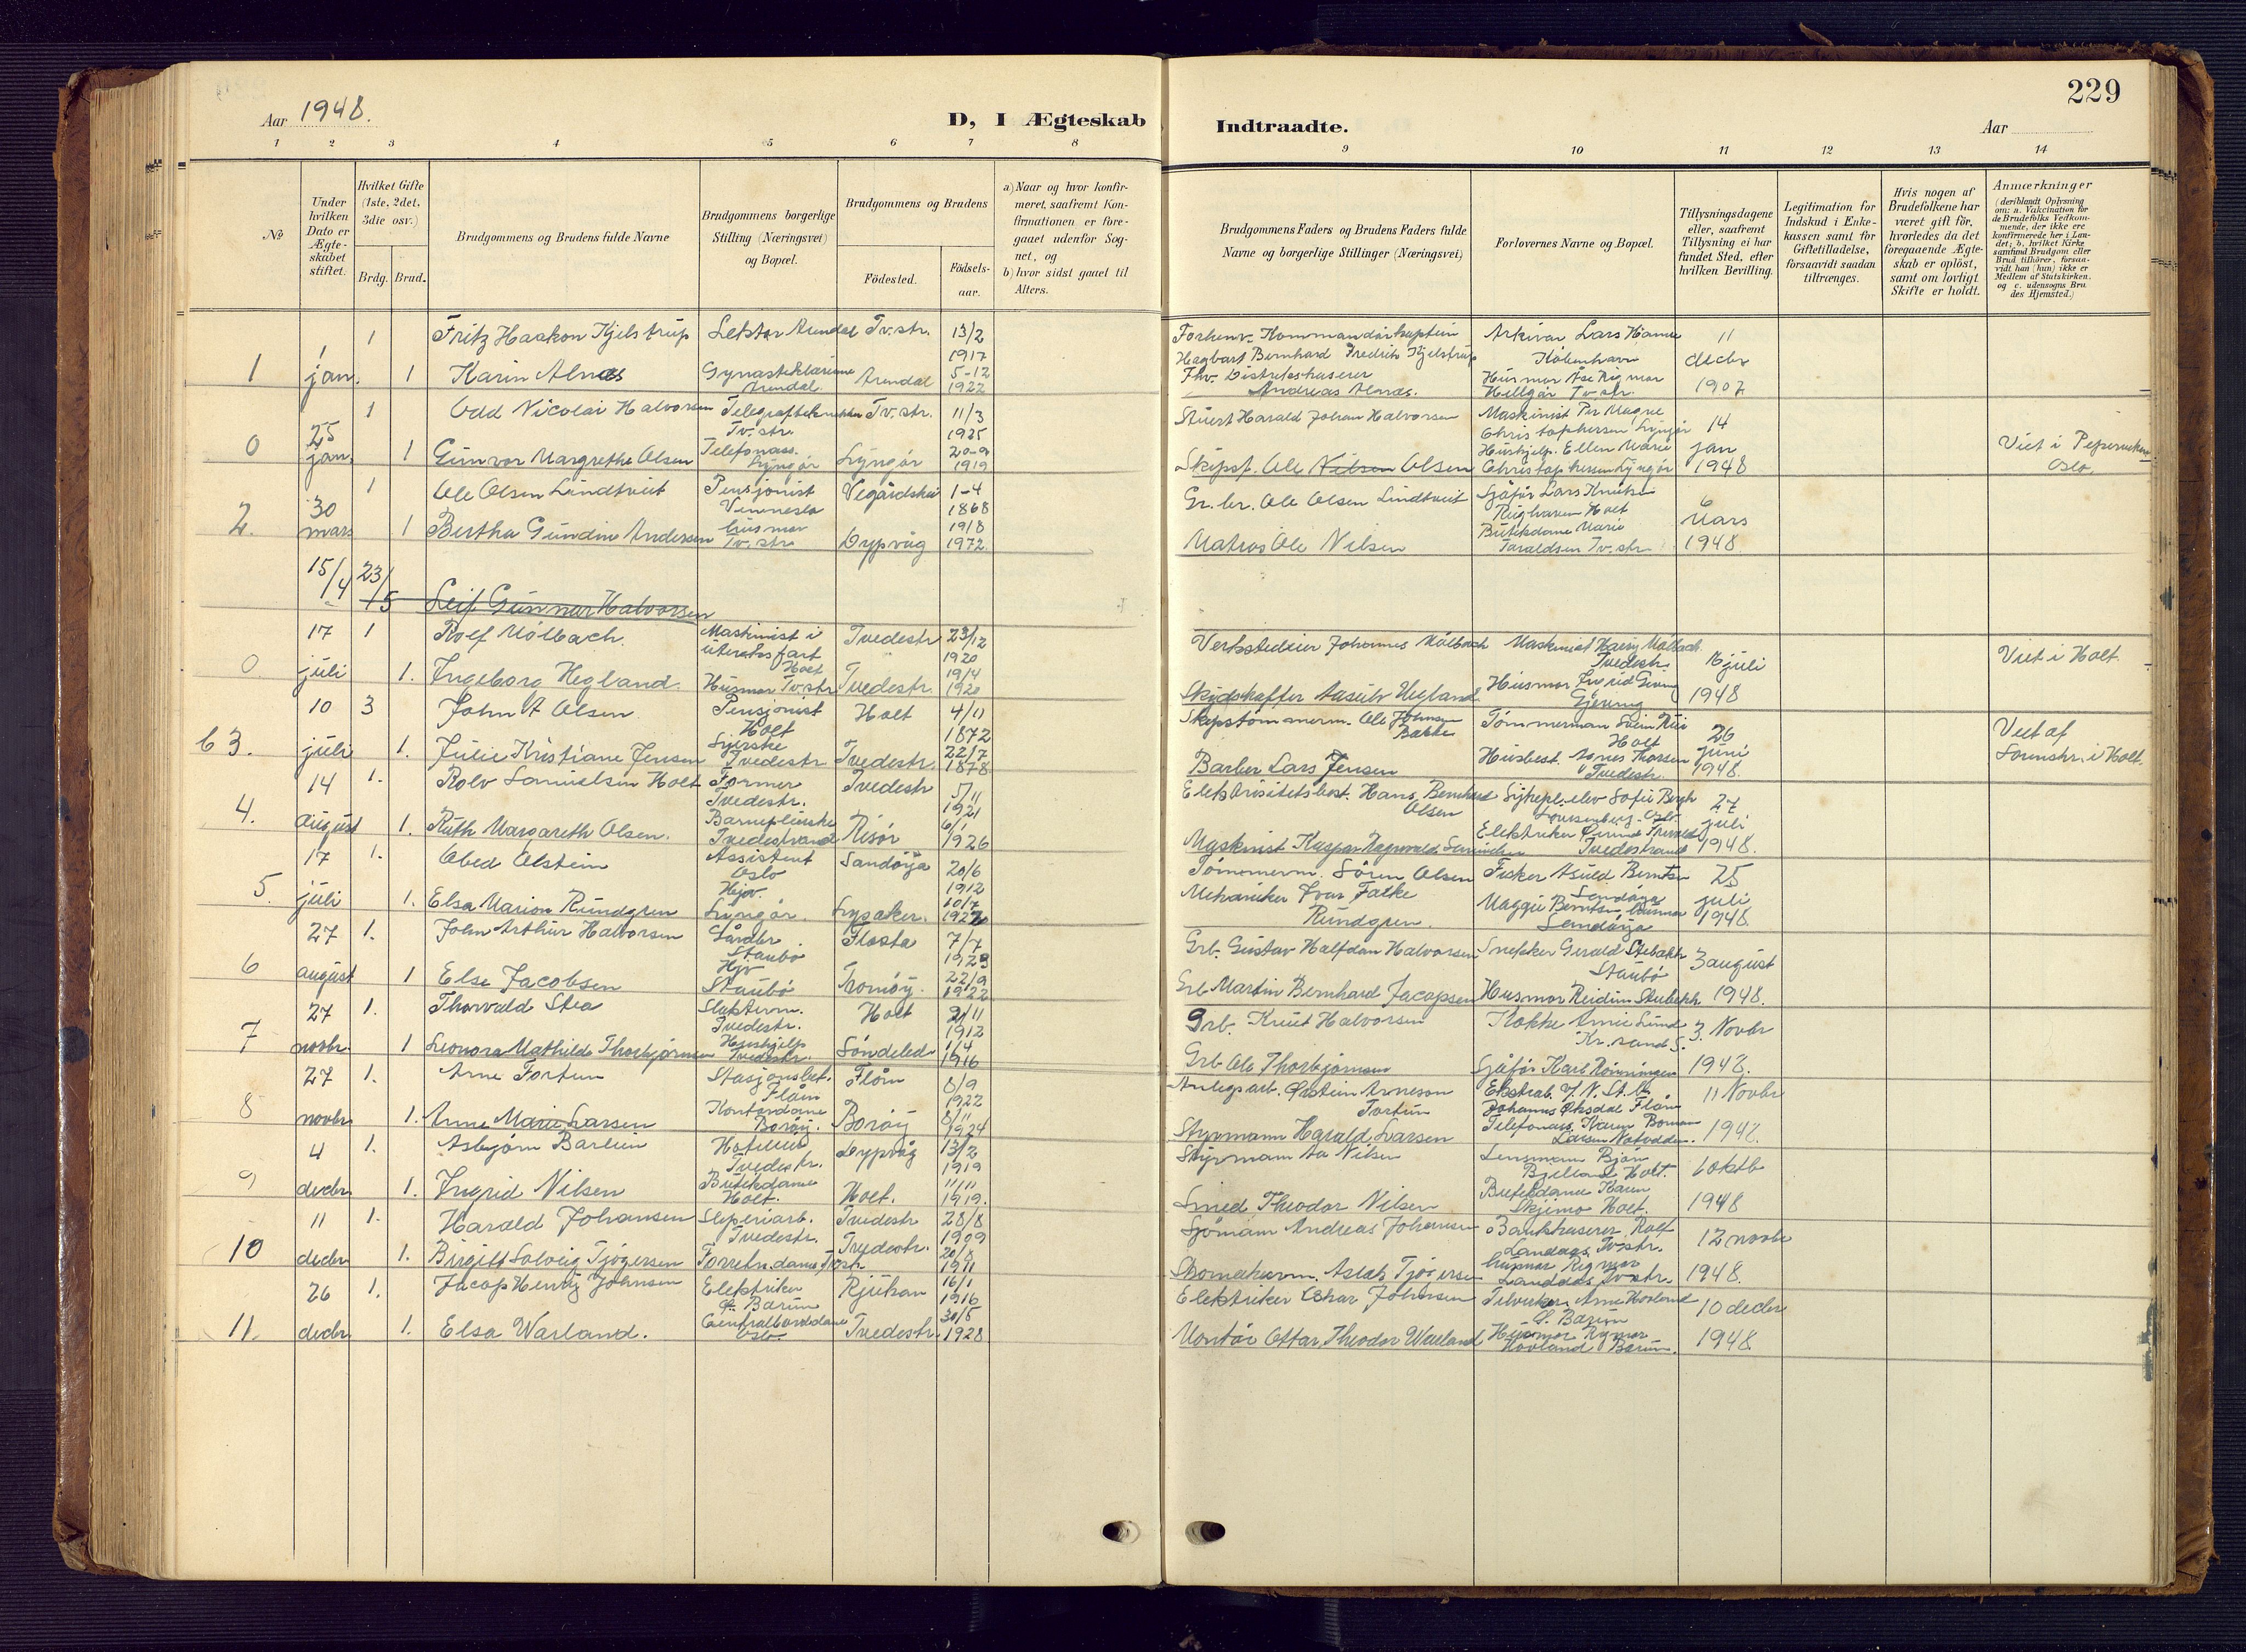 229
Aar 1948.
D, I Ægteskab
Indtraadte.
Aar
1 2 3 4 5 6 7 8
9 10 11 12 13 14
№
Under hvilken Dato er Ægte-skabet stiftet.
Hvilket Gifte (1ste, 2det, 3die osv.)
Brdg. Brud.
Brudgommens og Brudens fulde Navne
Brudgommens borgerlige Stilling (Næringsvei) og Bopæl.
Brudgommens og Brudens
Födested.
Födsels-aar.
a) Naar og hvor konfir-meret, saafremt Kon-firmationen er fore-gaaet udenfor Sog-net, og
b) hvor sidst gaaet til Alters.
Brudgommens Faders og Brudens Faders fulde Navne og borgerlige Stillinger (Næringsvei)
Forlovernes Navne og Bopæl.
Tillysningsdagene eller, saafremt Tillysning ei har fundet Sted, efter hvilken Bevilling.
Legitimation for Indskud i Enke-kassen samt for Giftetilladelse, forsaavidt saadan tiltrænges.
Hvis nogen af Brudefolkene har været gift för, hvorledes da det foregaaende Ægte-skab er oplöst, samt om lovligt Skifte er holdt.
Anmærkninger
(deriblandt Oplysning om: a. Vakcination for de Brudefolks Vedkom-mende, der ikke ere konfirmerede her i Lan-det; b. hvilket Kirke samfund Brudgom eller Brud tilhörer, forsaa-vidt han (hun) ikke er Medlem af Statskirken, og c. udensogns Bru des Hjemsted.)
1 Fritz Haakon Kjelstrup Lektor Arendal Tv.str. 13/2 1917
1 1 jan. 1 Karin Alnæs Arendal Arendal 5-12 1922
Forhenv. Kommandørkaptein Hagbart Bernhard Fredrik Kjelstrup Arkivar Lars København 11 decbr 1907
Fhv. Andreas Alnæs. Husmor Tv.str.
1 Odd Nicolai Halvorsen Tv.str. Tv.str. 11/3 1925
0 25 jan. 1 Gunvor Margrethe Olsen Telefonass. Lyngør Lyngör 20-9 1919
Stuert Harald Johan Halvorsen Maskinist Per Magne Christophersen Lyngør 14 jan 1948
Skipsf. Ole Nilsen Olsen Hushjelp. Ellen Marie Christophersen Lyngør Viet i Oslo.
1 Ole Olsen Lindtveit Pensjonist Vennesla 1-4 1868
2. 30 mars 1 Bertha Gundine Andersen husmor Tv.str. Dypvåg 19/8 1972
Gr.br. Ole Olsen Lindtveit Sjåfør Lars Knutsen Holt 6 Mars 1948.
Matros Ole Nilsen Butikdame Marie Taraldsen Tv.str.
15/4 23/5 Leif Gunnar Halvorsen
17 1 Rolf Mölbach. Maskinist i utenriksfart Holt Tvedestr 23/12 1920
0 juli 1. Ingeborg Hegland. Husmor Tv.str Tvedestr. 19/4 1920
Verkstedeier Johannes Mölbach Maskinist Harry Mölbach Tvedestr. 16 juli 1948
Hegland Husmor Viet i Holt.
10 3 John A Olsen. Pensjonist Holt Holt 4/11 1872
63. juli 1. Julie Kristiane Jensen Syerske Tvedestr. Tvedestr. 22/7 1878
Skipstömmerm. Ole Johnsen Bakke Tömmerman Holt 26 juni 1948.
Barber Lars Jensen Husbest. Agnes Thorsen Tvedestr. Viet af i Holt.
14 1. Rolv Samuelsen Holt Former Tvedestr. Tvedestr 5/11 1921
4. august 1. Ruth Margareth Olsen. Tvedestrand Risör 6/1 1926
Elektrisitetsbest. Hans Bernhard Olsen Sykepl.elev Sofie Bergh 27 juli 1948.
Maskinist Kaspar Ragnvald Elektriker Tvedestrand
17 1. Obed Olstein Assistent Oslo Sandöya 20/6 1912
5. juli 1. Elsa Marion Rundgren Hjv. Lyngör. Lysaker. 10/7 1922
Tömmerm. Sören Olsen Fisker Asuld Berntsen Sandöya 25 juli 1948.
Mekaniker Ivar Falke Rundgren. Maggie Berntsen husmor Sandöya
27 1. John Arthur Halvorsen Staubö Flosta 7/7 1923
6 august 1 Else Jacobsen Hjv Staubö Tromöy. 22/9 1922
Grb. Gustav Halfdan Halvorsen Snekker Gerald Stebakk Staubö 3 august 1948.
Grb Martin Bernhard Jacobsen Husmor Reidun Stubekk
27 1. Thorvald Stea Slakterm. Tvedestr. Holt 2/11 1912
7 novbr. 1 Leonora Mathilde Thorbjörnsen Hushjelp Tvedestr. Söndeled 1/4 1916
Grb. Knut Halvorsen Kokke Arne Lund Kr.sand S. 3 Novbr 1948.
Grb Ole Thorbjörnsen Sjåför Karl Rönningen
27 1. Arne Fortun Stasjonsbet. Flåm Flåm 8/9 1922
8 novbr 1. Anne Marie Larsen Kontordame Boröy. Boröy 8/11 1924
Anlegsarb. Öistein Arneson Fortun Johannes Öksdal Flåm 11 Novbr 1948.
Styrmann Harald Larsen Telefonass. Karen Boman Larsen Notodden.
4 1. Asbjörn Barlein Tvedestr. Dypvåg 13/2 1919
9 decbr 1. Ingrid Nilsen Butikdame Holt. Holt. 11/11 1919.
Styrmann Aa Nilsen Lensmann Björn Bjelland Holt. 6 oktb 1948
Smed Theodor Nilsen Butikdame Karen Skjemo Holt.
11 1. Harald Johansen Sliperiarb. Tvedestr. Tvedestr 28/8 1909
10 decbr 1. Birgitt Solveig Tjögersen Forretn.dame, Tvstr Tvedestr. 20/8 1911
Sjömann Andreas Johansen Bankkaserer Rolf Landaas Tvstr. 12 novbr 1948.
Skomakerm. Aslak Tjögersen husmor Rigmor Landdas Tvstr.
26 1. Jacop Henry Johnsen Elektriker Ö. Bærum Rjukan 16/1 1916
11. decbr. 1. Elsa Warland. Centralborddame Oslo. Tvedestr. 30/5 1928
Elektriker Oskar Johnsen Arne Hovland Ö. Bærum 10 decbr 1948.
Montör Ottar Theodor Warland Husmor Rymor Hovland Bærum.